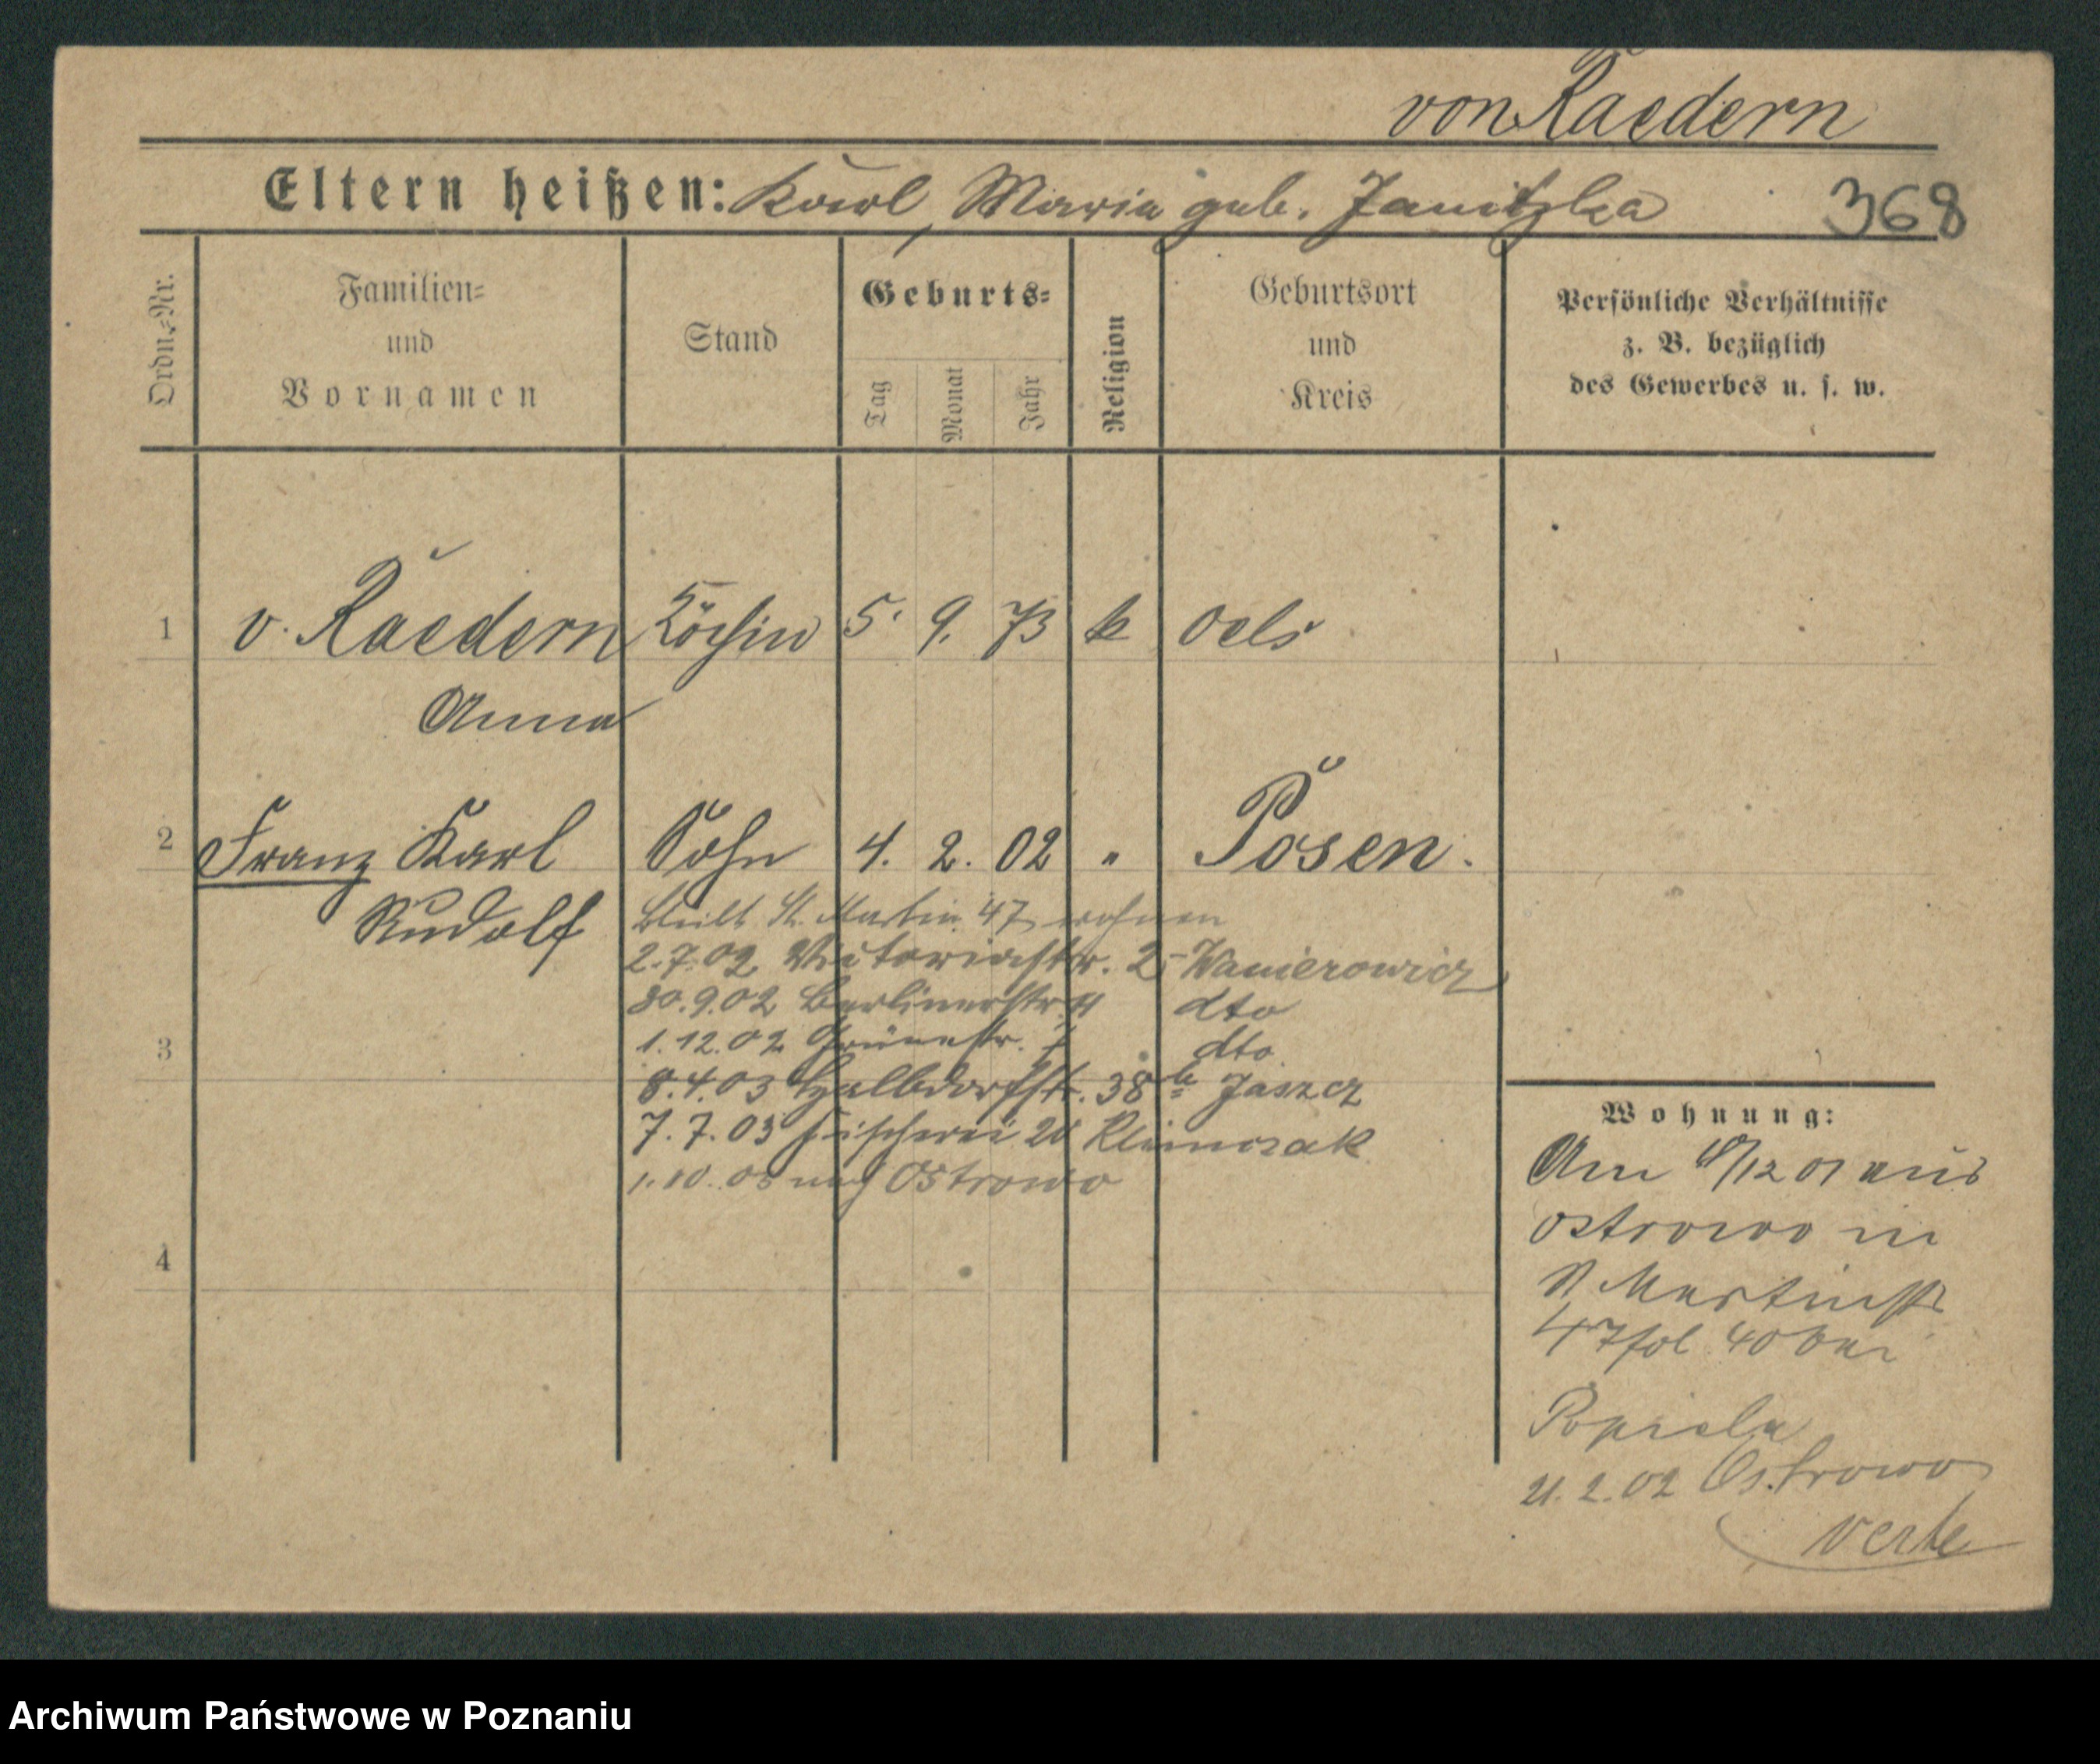 von Raedern
Eltern heißen: Karl, Maria geb. Janitzka 368
Ordn.-Nr.
Familien-
und
Vornamen
Stand
Geburts-
Tag
Monat
Jahr
Religion
Geburtsort
und
Kreis
Persönliche Verhältnisse
z. B. bezüglich
des Gewerbes u. s. w.
1 v. Raedern Köchin 5. 9. 73 k Oels
Anna
2 Franz Karl Sohn 4. 2. 02 " Posen.
Rudolf
bleibt St. Martin 47 wohnen
2.7.02 Victoriastr. Wanierowicz
30.9.02 Berlinerstr. dto
3
1.12.02 Grünestr. dto
8.4.03 Halbdorfstr. 38b Jaszcz
7.7.03 Fischerei Klimczak
1.10.03 nach Ostrowo
4
Wohnung:
Am /12 01 aus
Ostrowo in
St Martinstr
47 40 bei
Popiela
21.2.02 Ostrowo
verte
Archiwum Państwowe w Poznaniu